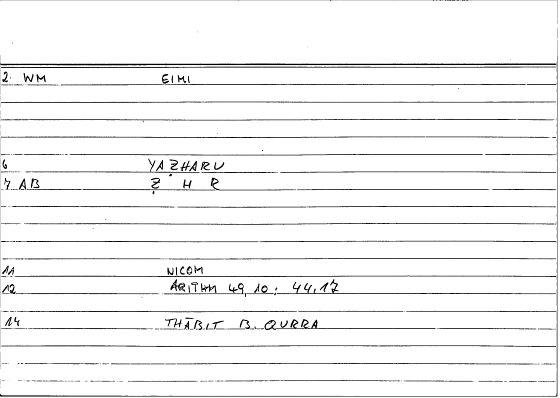 2. WM EIMI
6 YAẒHARU
7 AB Ẓ H R
11 NICOM
12 ARITHM 49,10; 44,17
14 THĀBIT B. QURRA